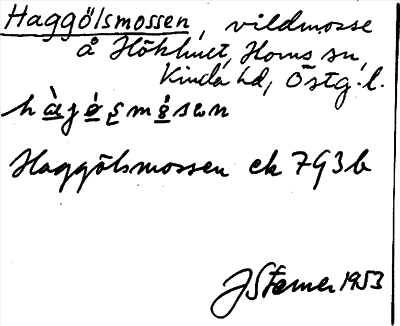 Haggölsmossen, vildmosse
å Hökhult, Horns sn,
Kinda hd, Östg. l.
Haggölsmossen ek 7G3b
JSterner 1953